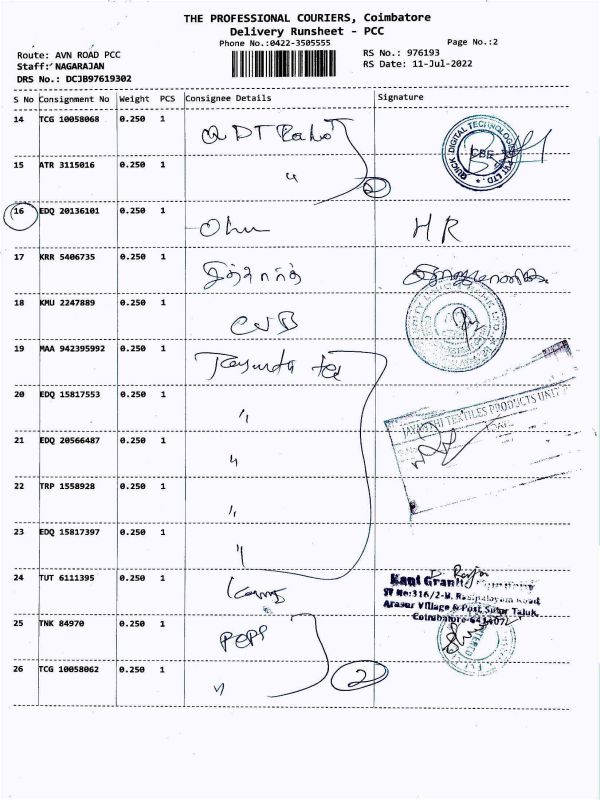 THE PROFESSIONAL COURIERS, Coimbatore
Delivery Runsheet - PCC
Phone No.:0422-3505555
Page No.:2
Route: AVN ROAD PCC
RS No.: 976193
Staff: NAGARAJAN
RS Date: 11-Jul-2022
DRS No.: DCJB97619302
S No Consignment No Weight PCS Consignee Details Signature
14 TCG 10058068 0.250 1
QUICK DIGITAL TECHNOLOGIES PVT LTD.
CBE
15 ATR 3115016 0.250 1 " 2
16 EDQ 20136101 0.250 1 HR
17 KRR 5406735 0.250 1
18 KMU 2247889 0.250 1 CUB
19 MAA 942395992 0.250 1
20 EDQ 15817553 0.250 1 "
JAYANTHI TEXTILES PRODUCTS UNIT
21 EDQ 20566487 0.250 1 "
22 TRP 1558928 0.250 1 "
23 EDQ 15817397 0.250 1 "
24 TUT 6111395 0.250 1
SF No:316/2-B, Road,
Arasur Village & Post, Sulur Taluk,
Coimbatore-641407
25 TNK 84970 0.250 1 POPP
26 TCG 10058062 0.250 1 " 2